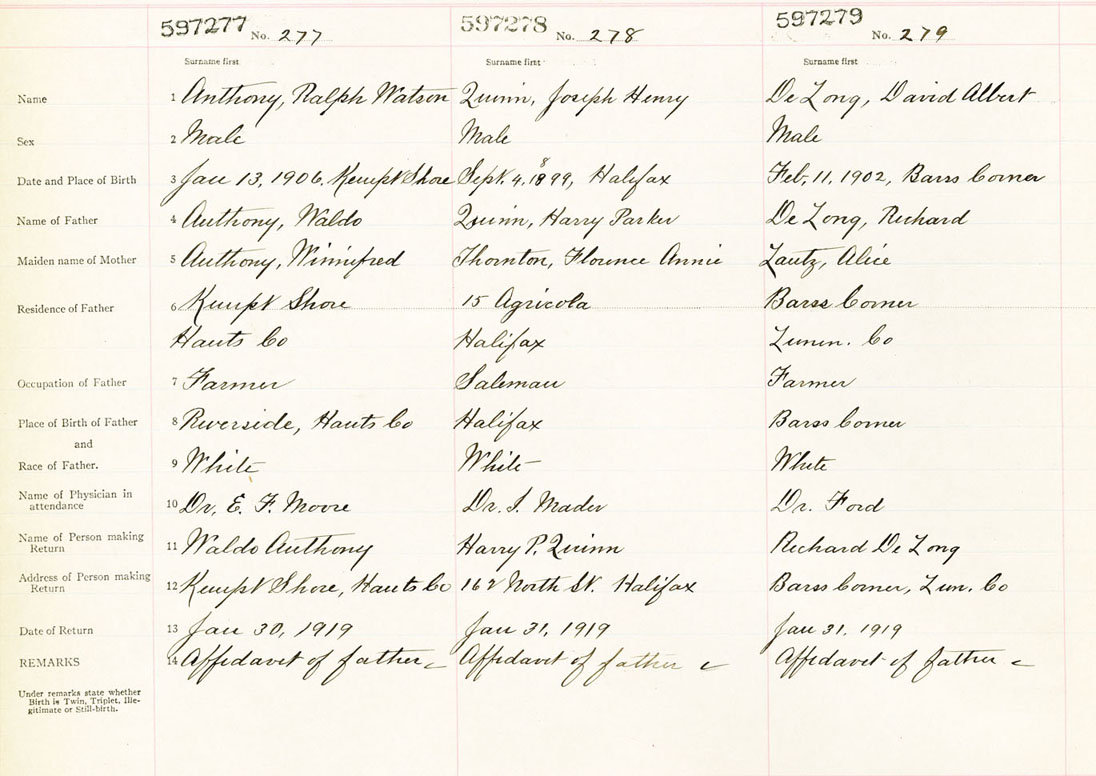 597277 597278 597279
No. 277 No. 278 No. 279
Surname first Surname first Surname first
Name 1 Anthony, Ralph Watson Quinn, Joseph Henry De Long, David Albert
Sex 2 Male Male Male
Date and Place of Birth 3 Jan 13, 1906, Kempt Shore Sept. 4, 1899, Halifax Feb. 11, 1902, Barss Corner
Name of Father 4 Anthony, Waldo Quinn, Harry Parker De Long, Richard
Maiden name of Mother 5 Anthony, Winnifred Thornton, Florence Annie Lantz, Alice
Residence of Father 6 Kempt Shore 15 Agricola Barss Corner
Hants Co Halifax Lunen. Co
Occupation of Father 7 Farmer Saleman Farmer
Place of Birth of Father 8 Riverside, Hants Co Halifax Barss Corner
and
Race of Father. 9 White White White
Name of Physician in
attendance 10 Dr. E. F. Moore Dr. I. Mader Dr. Ford
Name of Person making
Return 11 Waldo Anthony Harry P. Quinn Richard De Long
Address of Person making
Return 12 Kempt Shore, Hants Co North St. Halifax Barss Corner, Lun. Co
Date of Return 13 Jan 30, 1919 Jan 31, 1919 Jan 31, 1919
REMARKS 14 Affidavit of father Affidavit of father Affidavit of father
Under remarks state whether
Birth is Twin, Triplet, Ille-
gitimate or Still-birth.